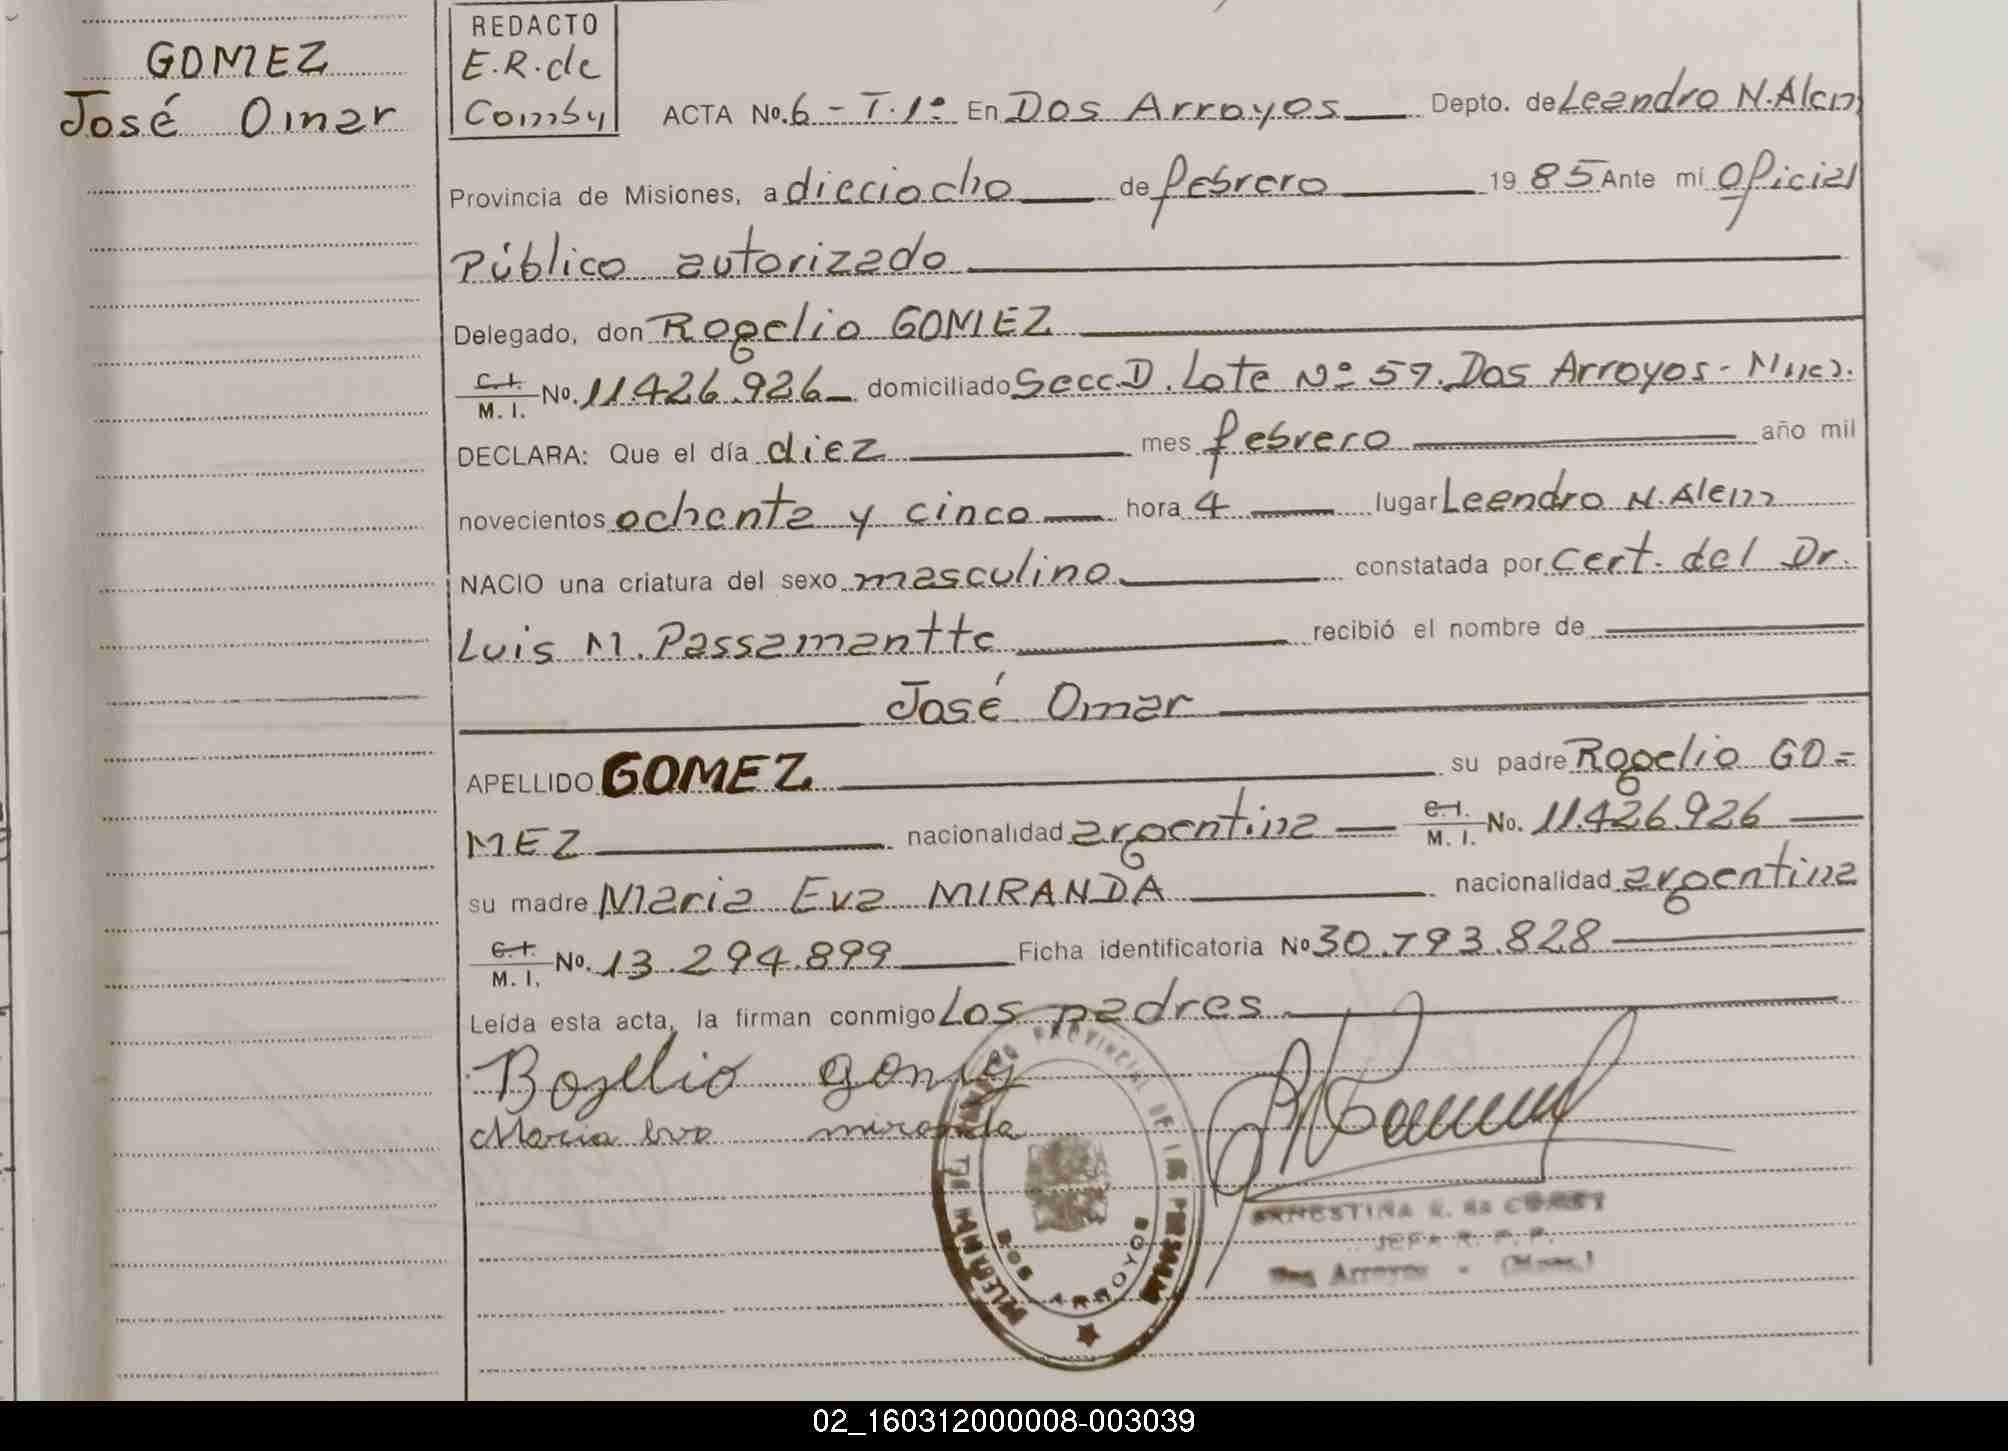 GOMEZ
José Omar
REDACTO
E.R. de
Comby
ACTA No. 6 - T. 1º En Dos Arroyos Depto. de Leandro N. Alem
Provincia de Misiones, a dieciocho de febrero 1985 Ante mí Oficial
Público autorizado
Delegado, don Rogelio GOMEZ
C.I. M. I. No. 11.426.926 domiciliado Secc. D. Lote Nº 57. Dos Arroyos - Mnes.
DECLARA: Que el día diez mes febrero año mil
novecientos ochenta y cinco hora 4 lugar Leandro N. Alem
NACIO una criatura del sexo masculino constatada por Cert. del Dr.
Luis M. Passamantte recibió el nombre de
José Omar
APELLIDO GOMEZ su padre Rogelio GO=
MEZ nacionalidad argentina C.I. M. I. No. 11.426.926
su madre Maria Eva MIRANDA nacionalidad argentina
C.I. M. I. No. 13.294.899 Ficha identificatoria Nº 30.793.828
Leída esta acta, la firman conmigo Los padres
Rogelio gomez
Maria eva miranda
PROVINCIAL DE LAS PERSONAS
DOS ARROYOS
ERNESTINA R. de COMBY
JEFA R. P. P.
Dos Arroyos - (Mnes.)
02_160312000008-003039